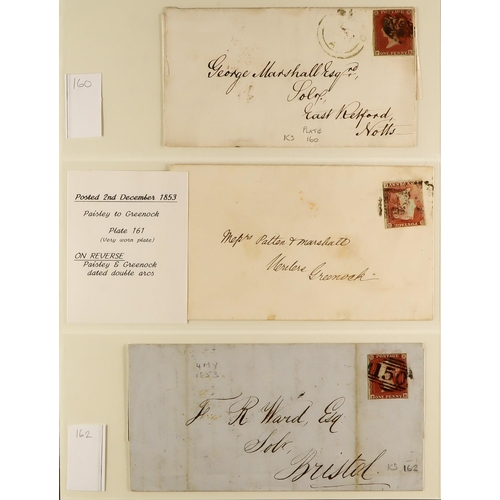 160
George Marshall Esqr.
Solr.
East Retford,
Notts
PLATE
160
Posted 2nd December 1853
Paisley to Greenock
Plate 161
(Very worn plate)
ON REVERSE
Paisley & Greenock
dated double arcs
POSTAGE
ONE PENNY
Messrs Patten & Marshall
Writers
Greenock
162
4 MY
1853
POSTAGE
ONE PENNY
F R Ward, Esq
Solr,
Bristol
162